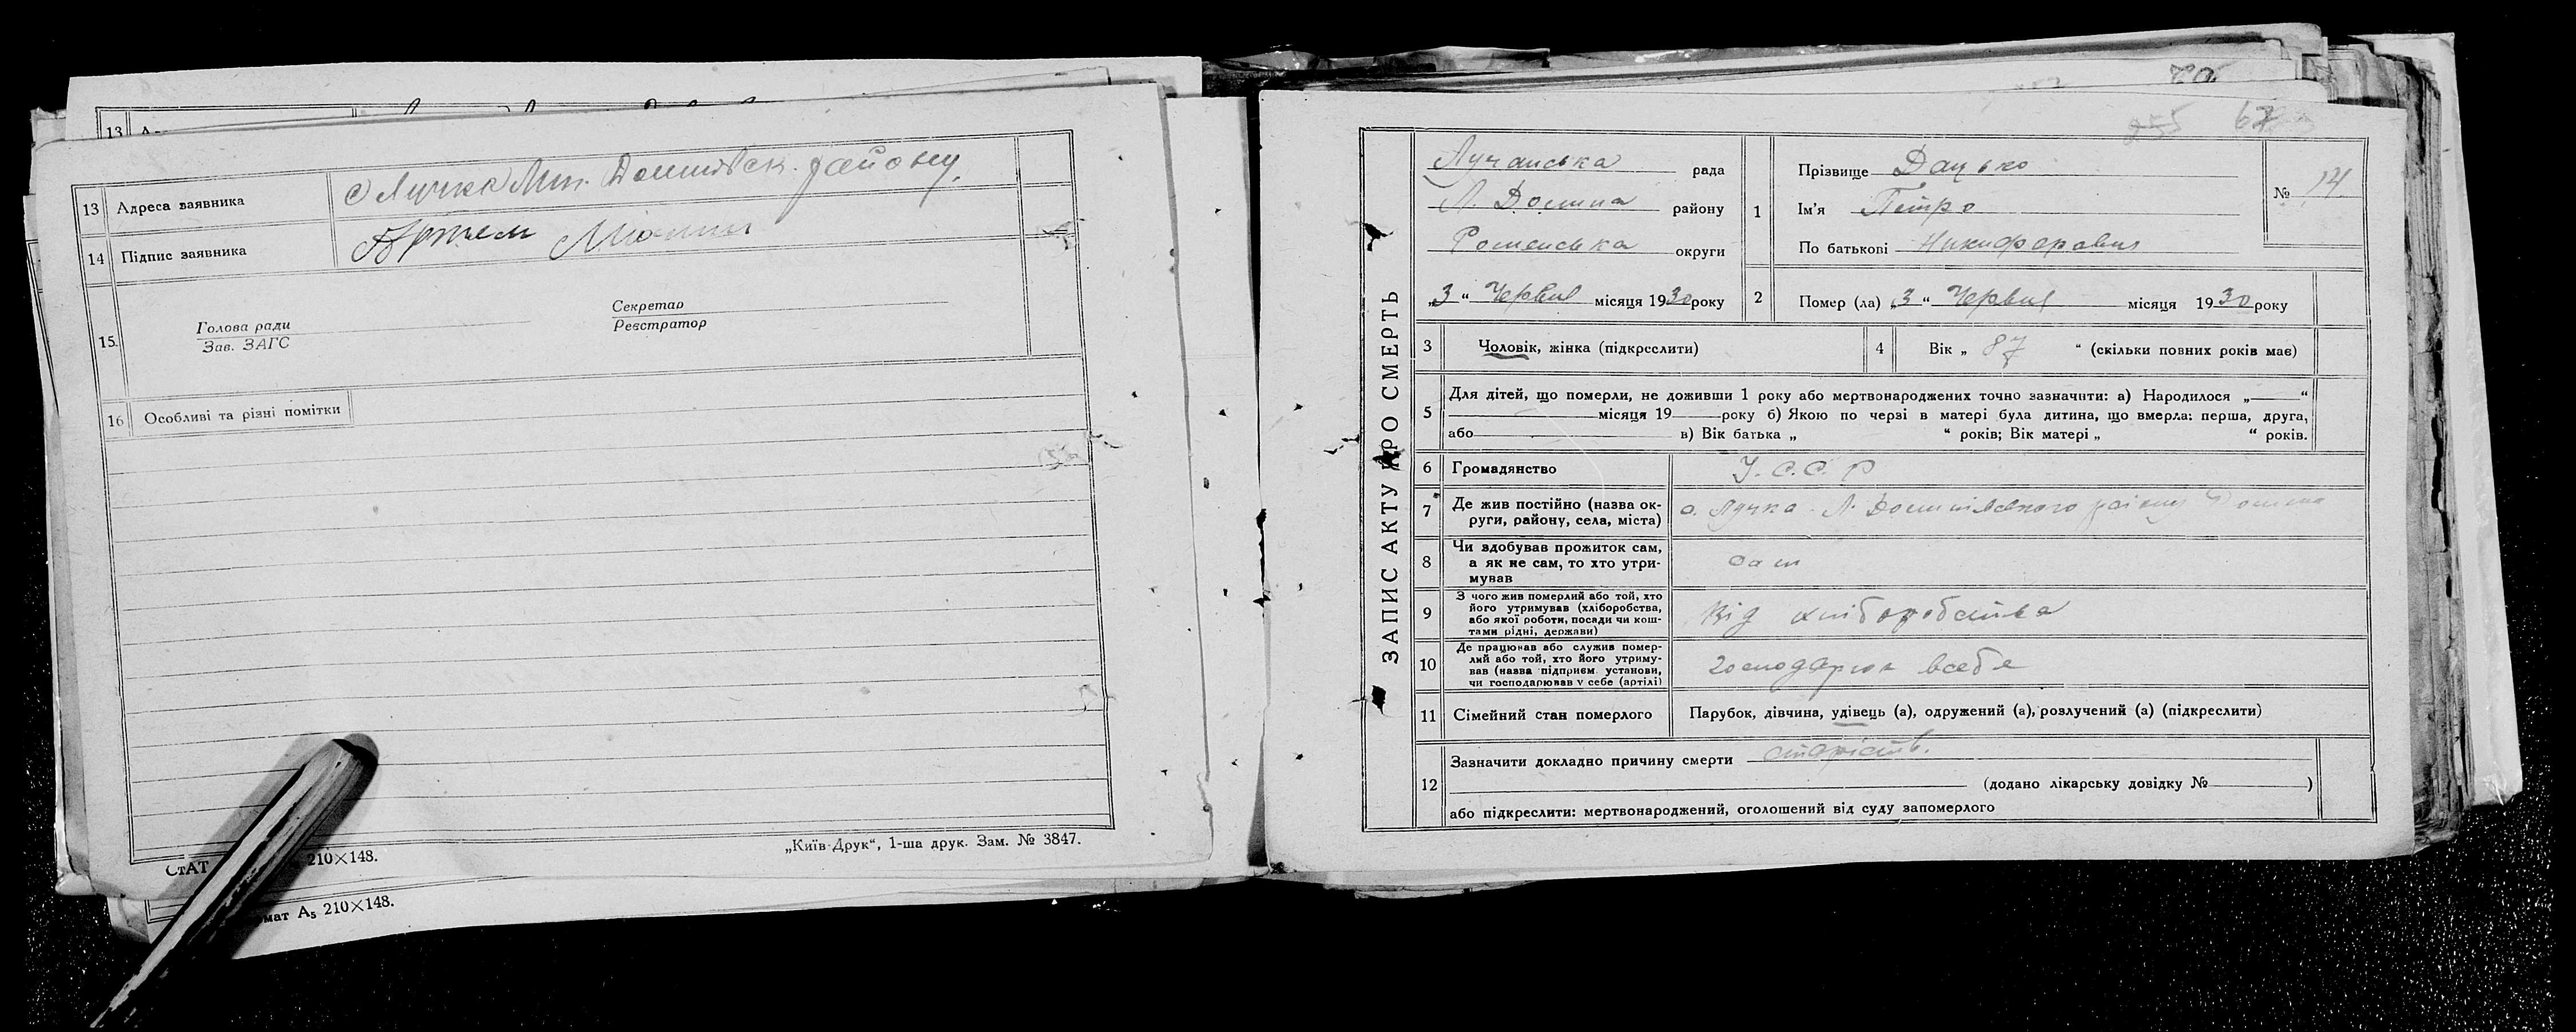 13 Адреса заявника с Лучка Лип. Долинівск. району.
14 Підпис заявника Артем
15. Голова ради
Зав. ЗАГС
Секретар
Реєстратор
16 Особливі та різні помітки
„Київ-Друк“, 1-ша друк. Зам. № 3847.
210×148.
мат А₅ 210×148.
67
ЗАПИС АКТУ ПРО СМЕРТЬ
Лучанська рада
Л. Долина району
Роменська округи
„3“ Червня місяця 1930 року
1 Прізвище Дацько
Ім'я Петро
По батькові Никифорович
№ 14
2 Помер (ла) „3“ Червня місяця 1930 року
3 Чоловік, жінка (підкреслити)
4 Вік „ 87 “ (скільки повних років має)
5 Для дітей, що померли, не доживши 1 року або мертвонароджених точно зазначити: а) Народилося „ “
місяця 19 року б) Якою по черзі в матері була дитина, що вмерла: перша, друга,
або в) Вік батька „ “ років; Вік матері „ “ років.
6 Громадянство У.С.С.Р
7 Де жив постійно (назва ок-
руги, району, села, міста) с. Лучка Л. Долинівського району
8 Чи здобував прожиток сам,
а як не сам, то хто утри-
мував сам
9 З чого жив померлий або той, хто
його утримував (хліборобства,
або якої роботи, посади чи кош-
тами рідні, держави) Від хліборобства
10 Де працював або служив помер-
лий або той, хто його утриму-
вав (назва підприєм. установи,
чи господарював у себе (артілі) господарюв всебе
11 Сімейний стан померлого Парубок, дівчина, удівець (а), одружений (а), розлучений (а) (підкреслити)
12 Зазначити докладно причину смерти старість.
(додано лікарську довідку № )
або підкреслити: мертвонароджений, оголошений від суду запомерлого